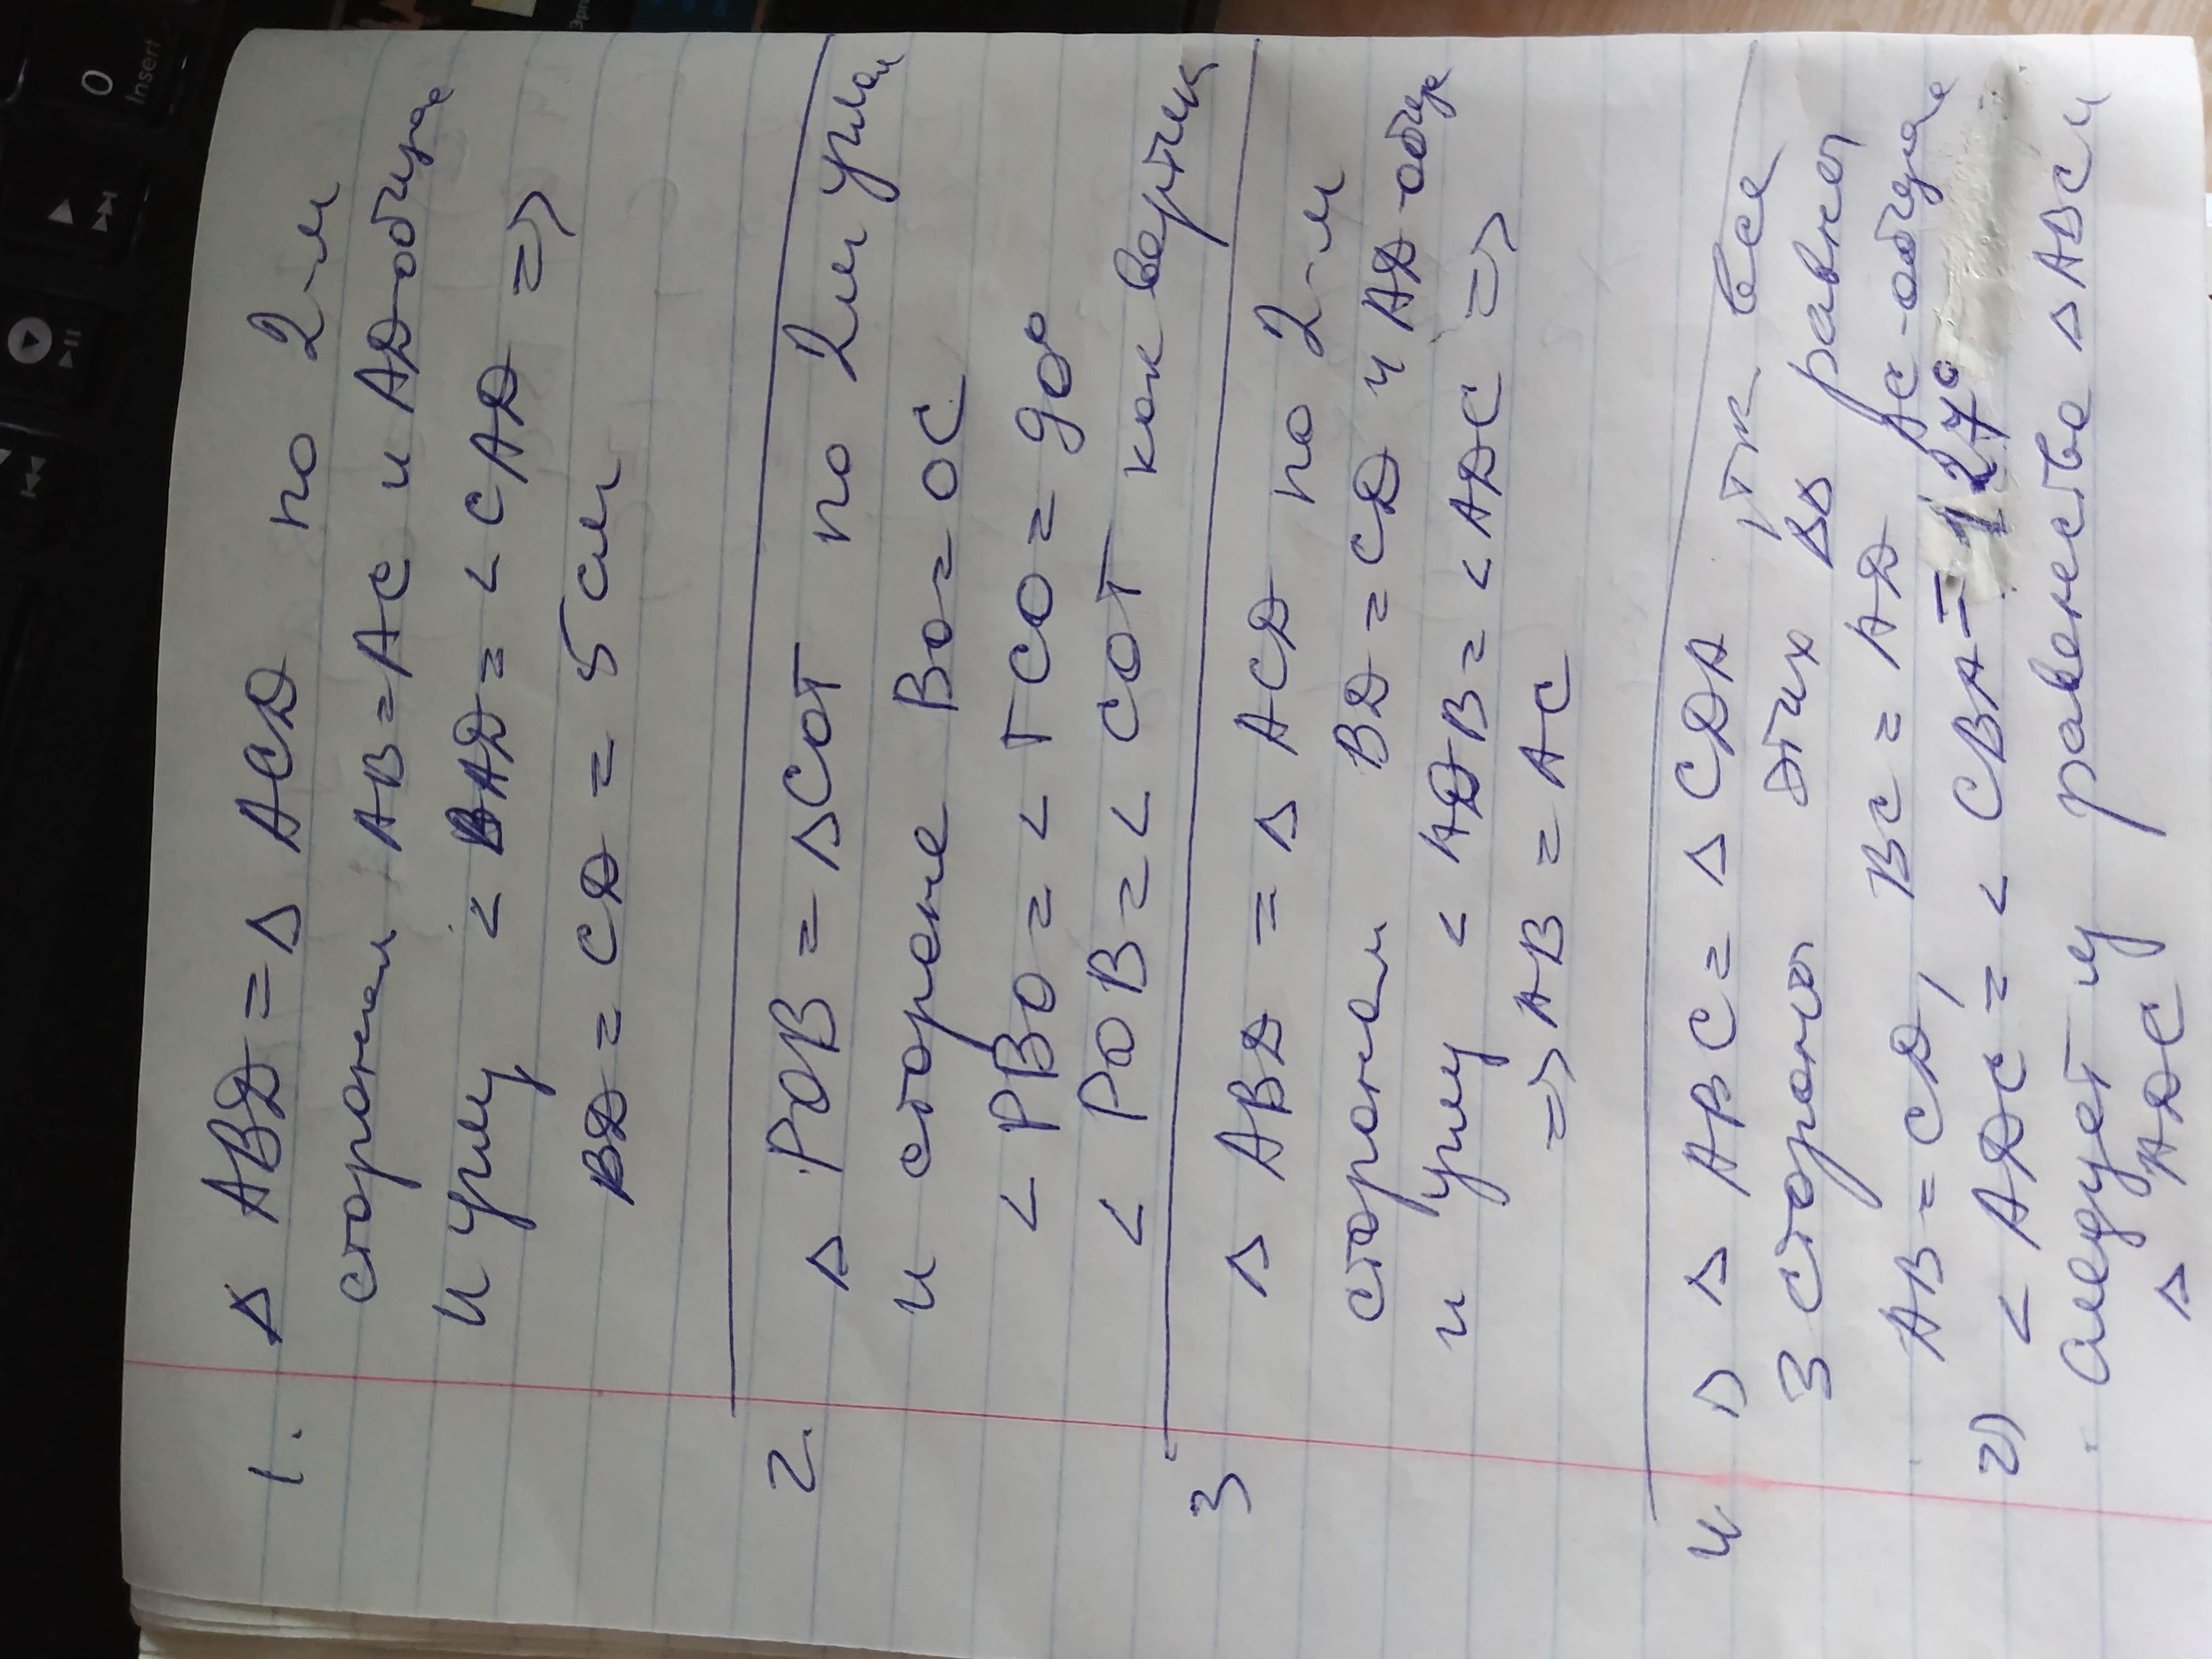 1. Δ ABD = Δ ACD по 2-м
сторонам AB = AC и AD-общая
и углу < BAD = < CAD =>
BD = CD = 5 см
2. Δ POB = ΔCOT по 2м углам
и стороне BO = OC
< PBO = < TCO = 90°
< POB = < COT как вертик
3 Δ ABD = Δ ACD по 2-м
сторонам BD = CD и AD-общ
и углу < ADB = < ADC =>
=> AB = AC
4. 1) Δ ABC = Δ CDA , тк. все
3 стороны этих ΔΔ равны
AB = CD, BC = AD AC-общая
2) < ADC = < CBA = 127°
следует из равенства Δ ABC и
Δ ADC
0
Insert